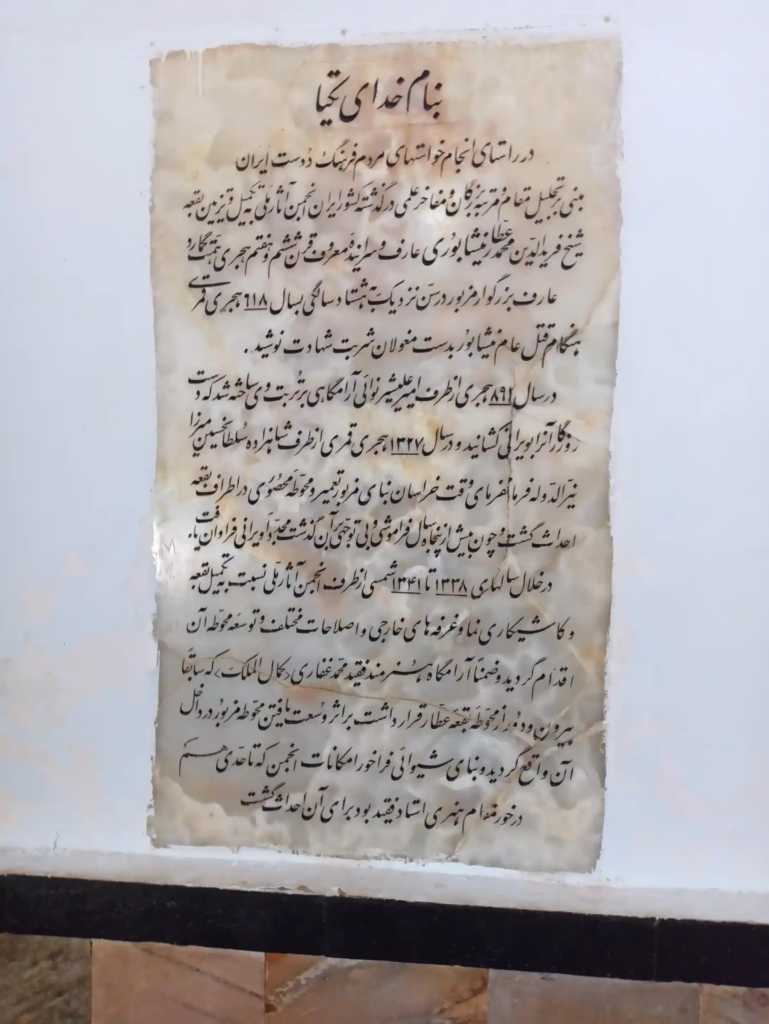 بنام خدای یکتا
در راستای انجام خواستهای مردم فرهنگ دوست ایران
مبنی بر تجلیل مقام و مرتبه بزرگان و مفاخر علمی در گذشته کشور ایران انجمن آثار ملی به تکمیل و تزیین بقعه
شیخ فرید الدین محمد عطار نیشابوری عارف و سراینده معروف قرن ششم و هفتم هجری همت گمارد
عارف بزرگوار مزبور در سن نزدیک به هشتاد سالگی بسال ۶۱۸ هجری قمری
هنگام قتل عام نیشابور بدست مغولان شربت شهادت نوشید .
در سال ۸۹۱ هجری از طرف امیر علیشیر نوائی آرامگاهی بر تربت وی ساخته شد که دست
روزگار آنرا بویرانی کشانید و در سال ۱۳۲۷ هجری قمری از طرف شاهزاده سلطانحسین میرزا
نیرالدوله فرمانفرمای وقت خراسان بنای مزبور تعمیر و محوطه محصوری در اطراف بقعه
احداث گشت و چون بیش از پنجاه سال فراموشی و بی توجهی بر آن گذشت مجدداً ویرانی فراوان یافت.
در خلال سالهای ۱۳۳۸ تا ۱۳۴۱ شمسی از طرف انجمن آثار ملی نسبت به تکمیل بقعه
و کاشیکاری نما و غرفه های خارجی و اصلاحات مختلف و توسعه محوطه آن
اقدام گردید و ضمناً آرامگاه هنرمند فقید محمد غفاری <کمال الملک> که سابقاً
بیرون و دور از محوطه بقعه عطار قرار داشت بر اثر وسعت یافتن محوطه مزبور در داخل
آن واقع گردید و بنای شیوائی فراخور امکانات انجمن که تا حدی هم
در خور مقام هنری استاد فقید بود برای آن احداث گشت